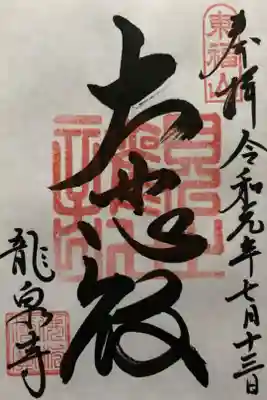 東福山
奉拝 令和元年七月十三日
大悲殿
龍泉寺